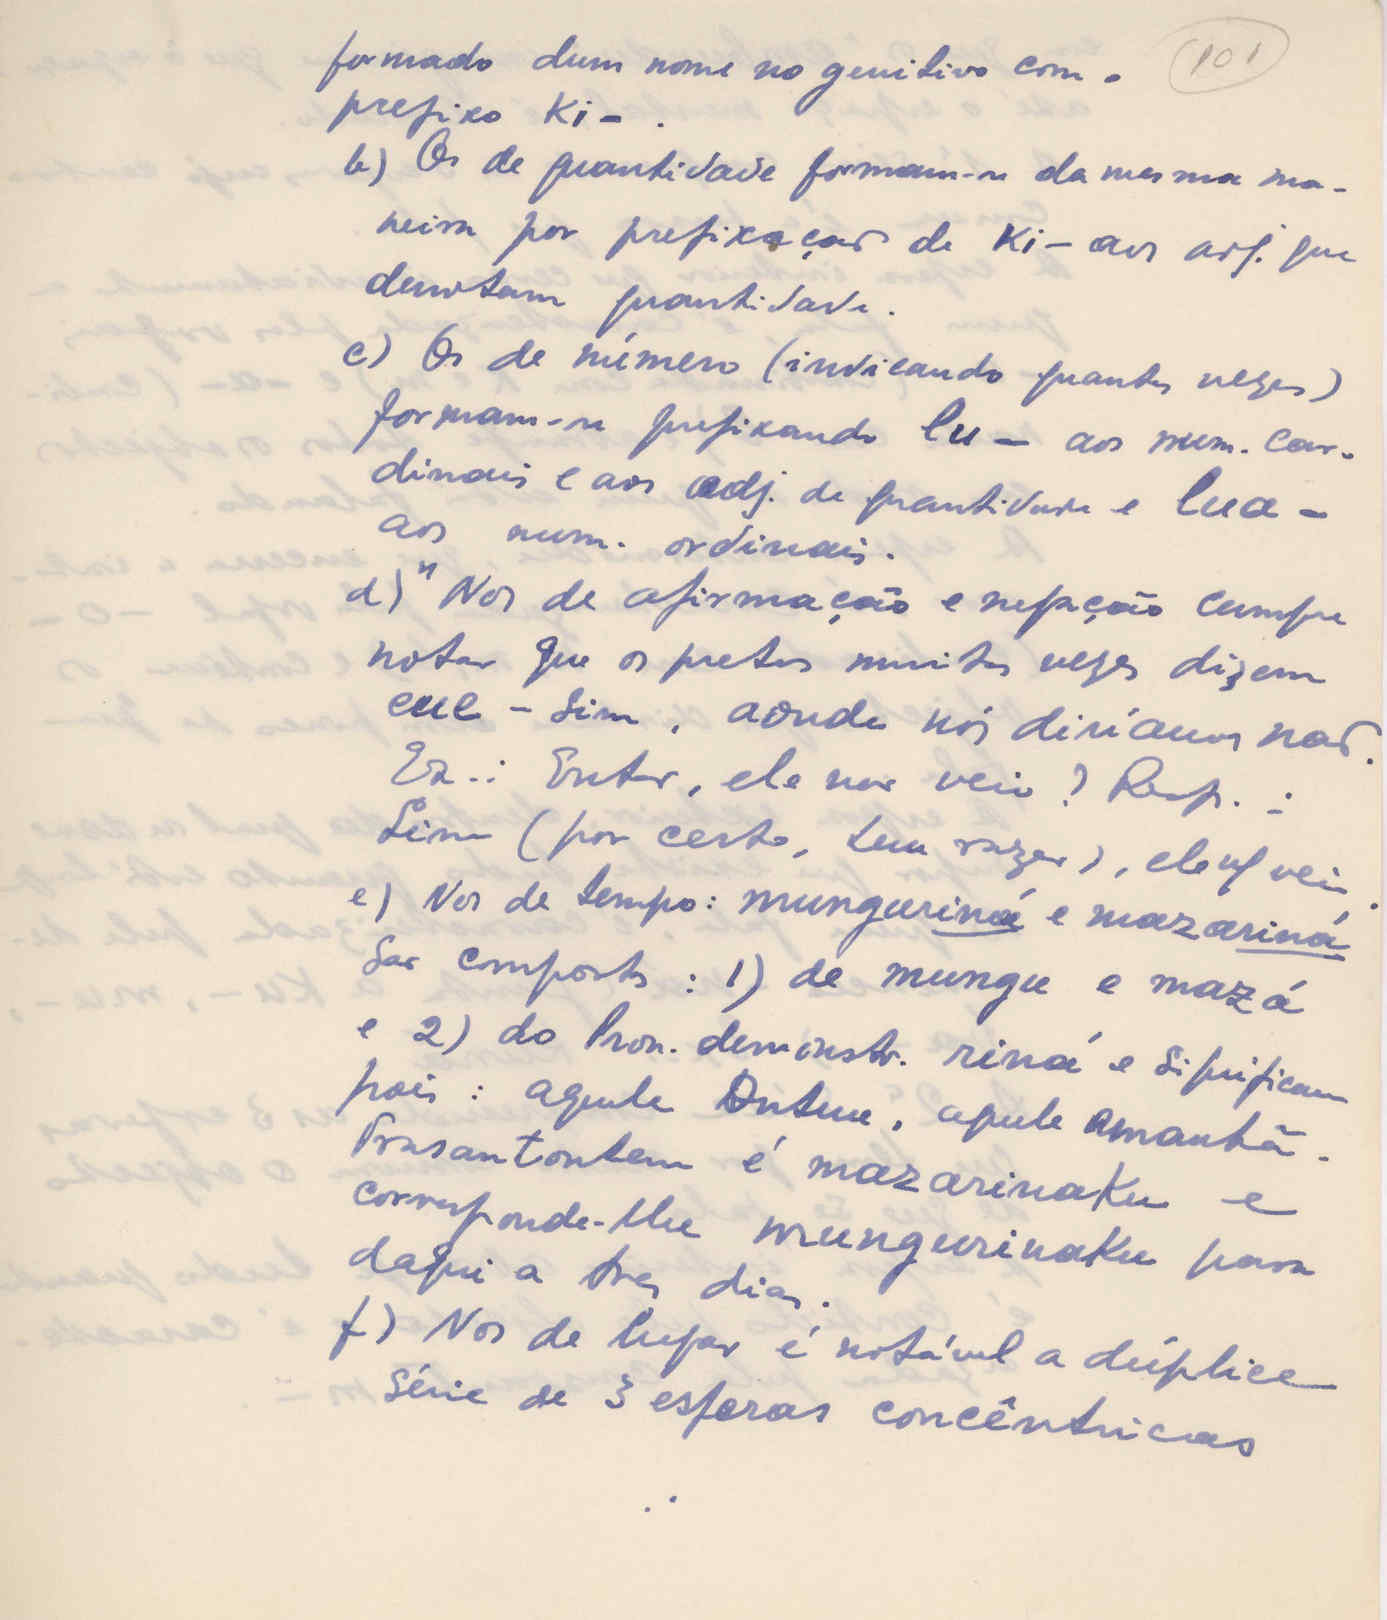 101
formado dum nome no genitivo com o
prefixo Ki- .
b) Os de quantidade formam-se da mesma ma-
neira por prefixação de Ki- aos adj. que
denotam quantidade.
c) Os de número (indicando quantas vezes)
formam-se prefixando lu- aos num. car-
dinais e aos adj. de quantidade e lua-
aos num. ordinais.
d)" Nos de afirmação e negação cumpre
notar que os pretos muitas vezes dizem
eue - Sim, aonde nós diríamos não.
Ex.: Então, ele não veio? Resp. :
Sim (por certo, tem razão), ele veio.
e) Nos de tempo: munguriná e mazariná
São compostos : 1) de mungu e mazá
e 2) do Pron. demonstr. riná e significam
pois : aquele Ontem, aquele amanhã.
Trasantontem é mazarinaku e
corresponde-lhe mungurinaku para
daqui a tres dias.
f) Nos de lugar é notável a dúplice
série de 3 esferas concêntricas